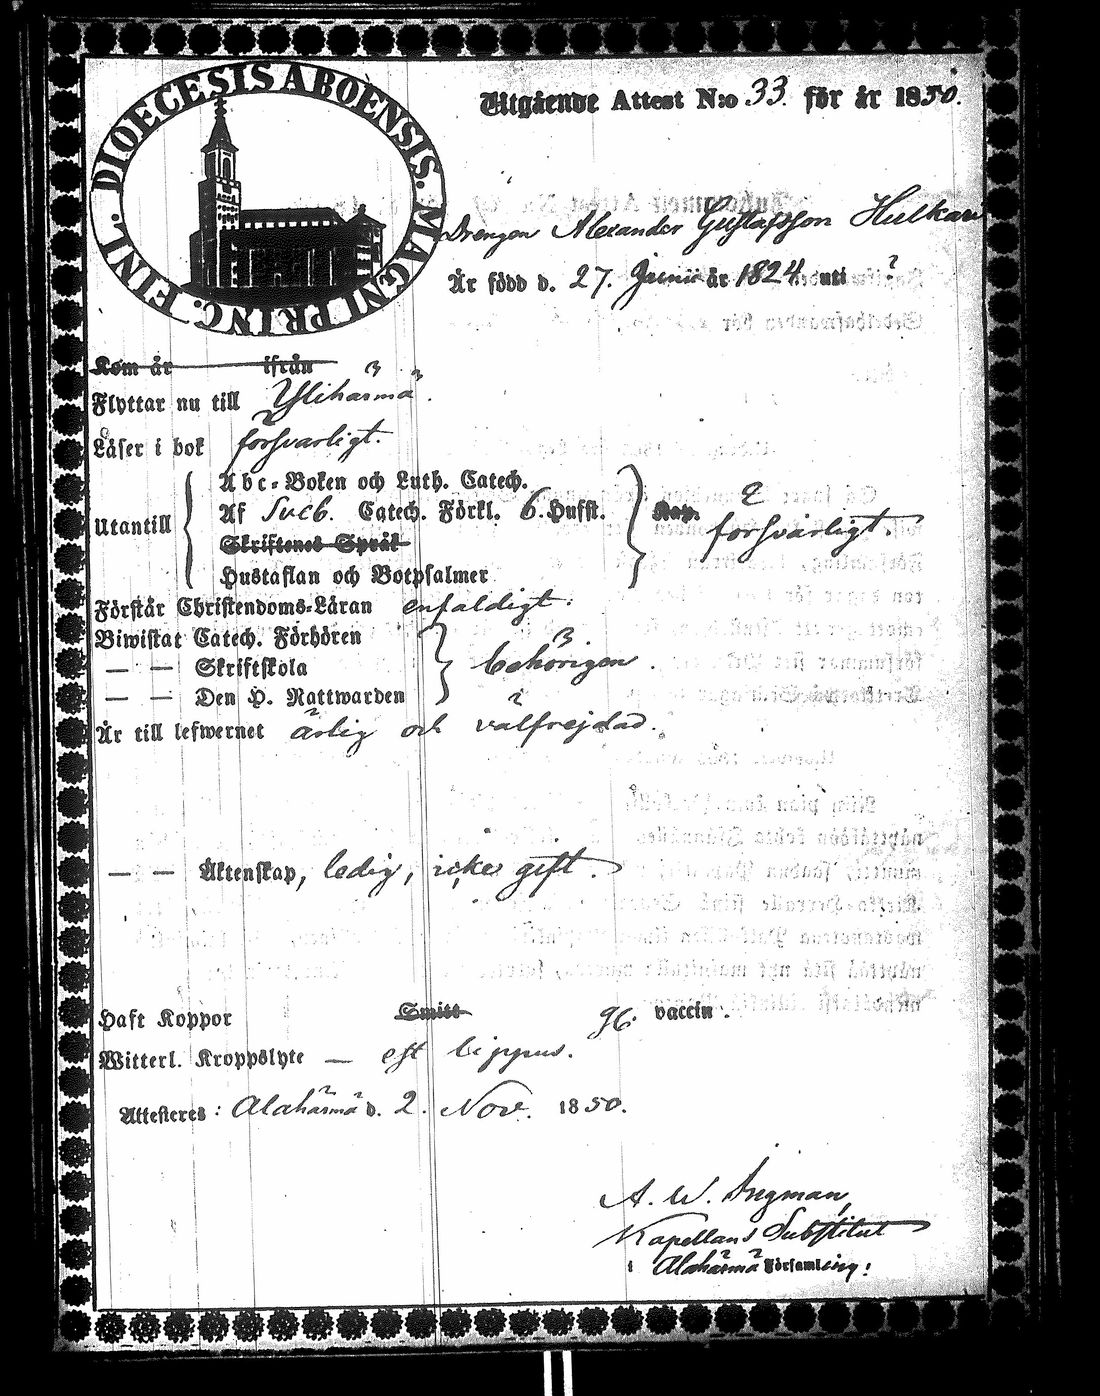 DIOECESIS ABOENSIS. MAGNI PRINC. FINL.
Utgående Attest N:o 33. för år 1850.
Drengen Alexander Gustafsson Hulkari
Är född d. 27. Junii år 1824. uti
Kom år ifrån
Flyttar nu till Ylihärmä.
Läser i bok försvarligt.
Utantill
Abc-Boken och Luth. Catech.
Af Sveb. Catech. Förkl. 6. Hufst.
Skriftenes Språk
Hustaflan och Botpsalmer
försvarligt.
Förstår Christendoms-Läran enfaldigt.
Biwistat Catech. Förhören
— — Skriftskola
— — Den H. Nattwarden
behörigen.
Är till lefwernet ärlig och välfrejdad.
— — Äktenskap, ledig, icke gift.
Haft Koppor Smitt vaccin.
Witterl. Kroppslyte —
Attesteres: Alahärmä d. 2. Nov. 1850.
A. W. Ingman,
Kapellans Substitut
i Alahärmä Församling.